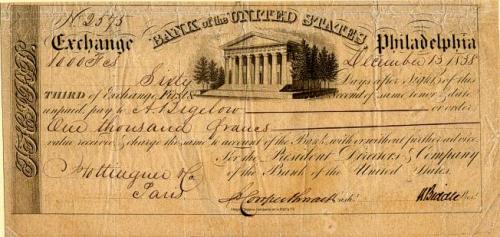 No 2595
BANK of the UNITED STATES,
Exchange Philadelphia
1000 Fcs December 13 1838
Sixty Days after Sight of this
THIRD of Exchange First & Second of same tenor & date
unpaid, pay to A. Bigelow or order
One thousand francs
value received & charge the same to account of the Bank, with or without further advice.
For the President Directors & Company
of the Bank of the United States.
Hottinguer & Co
Paris
Cash.r
N Biddle Pres.t